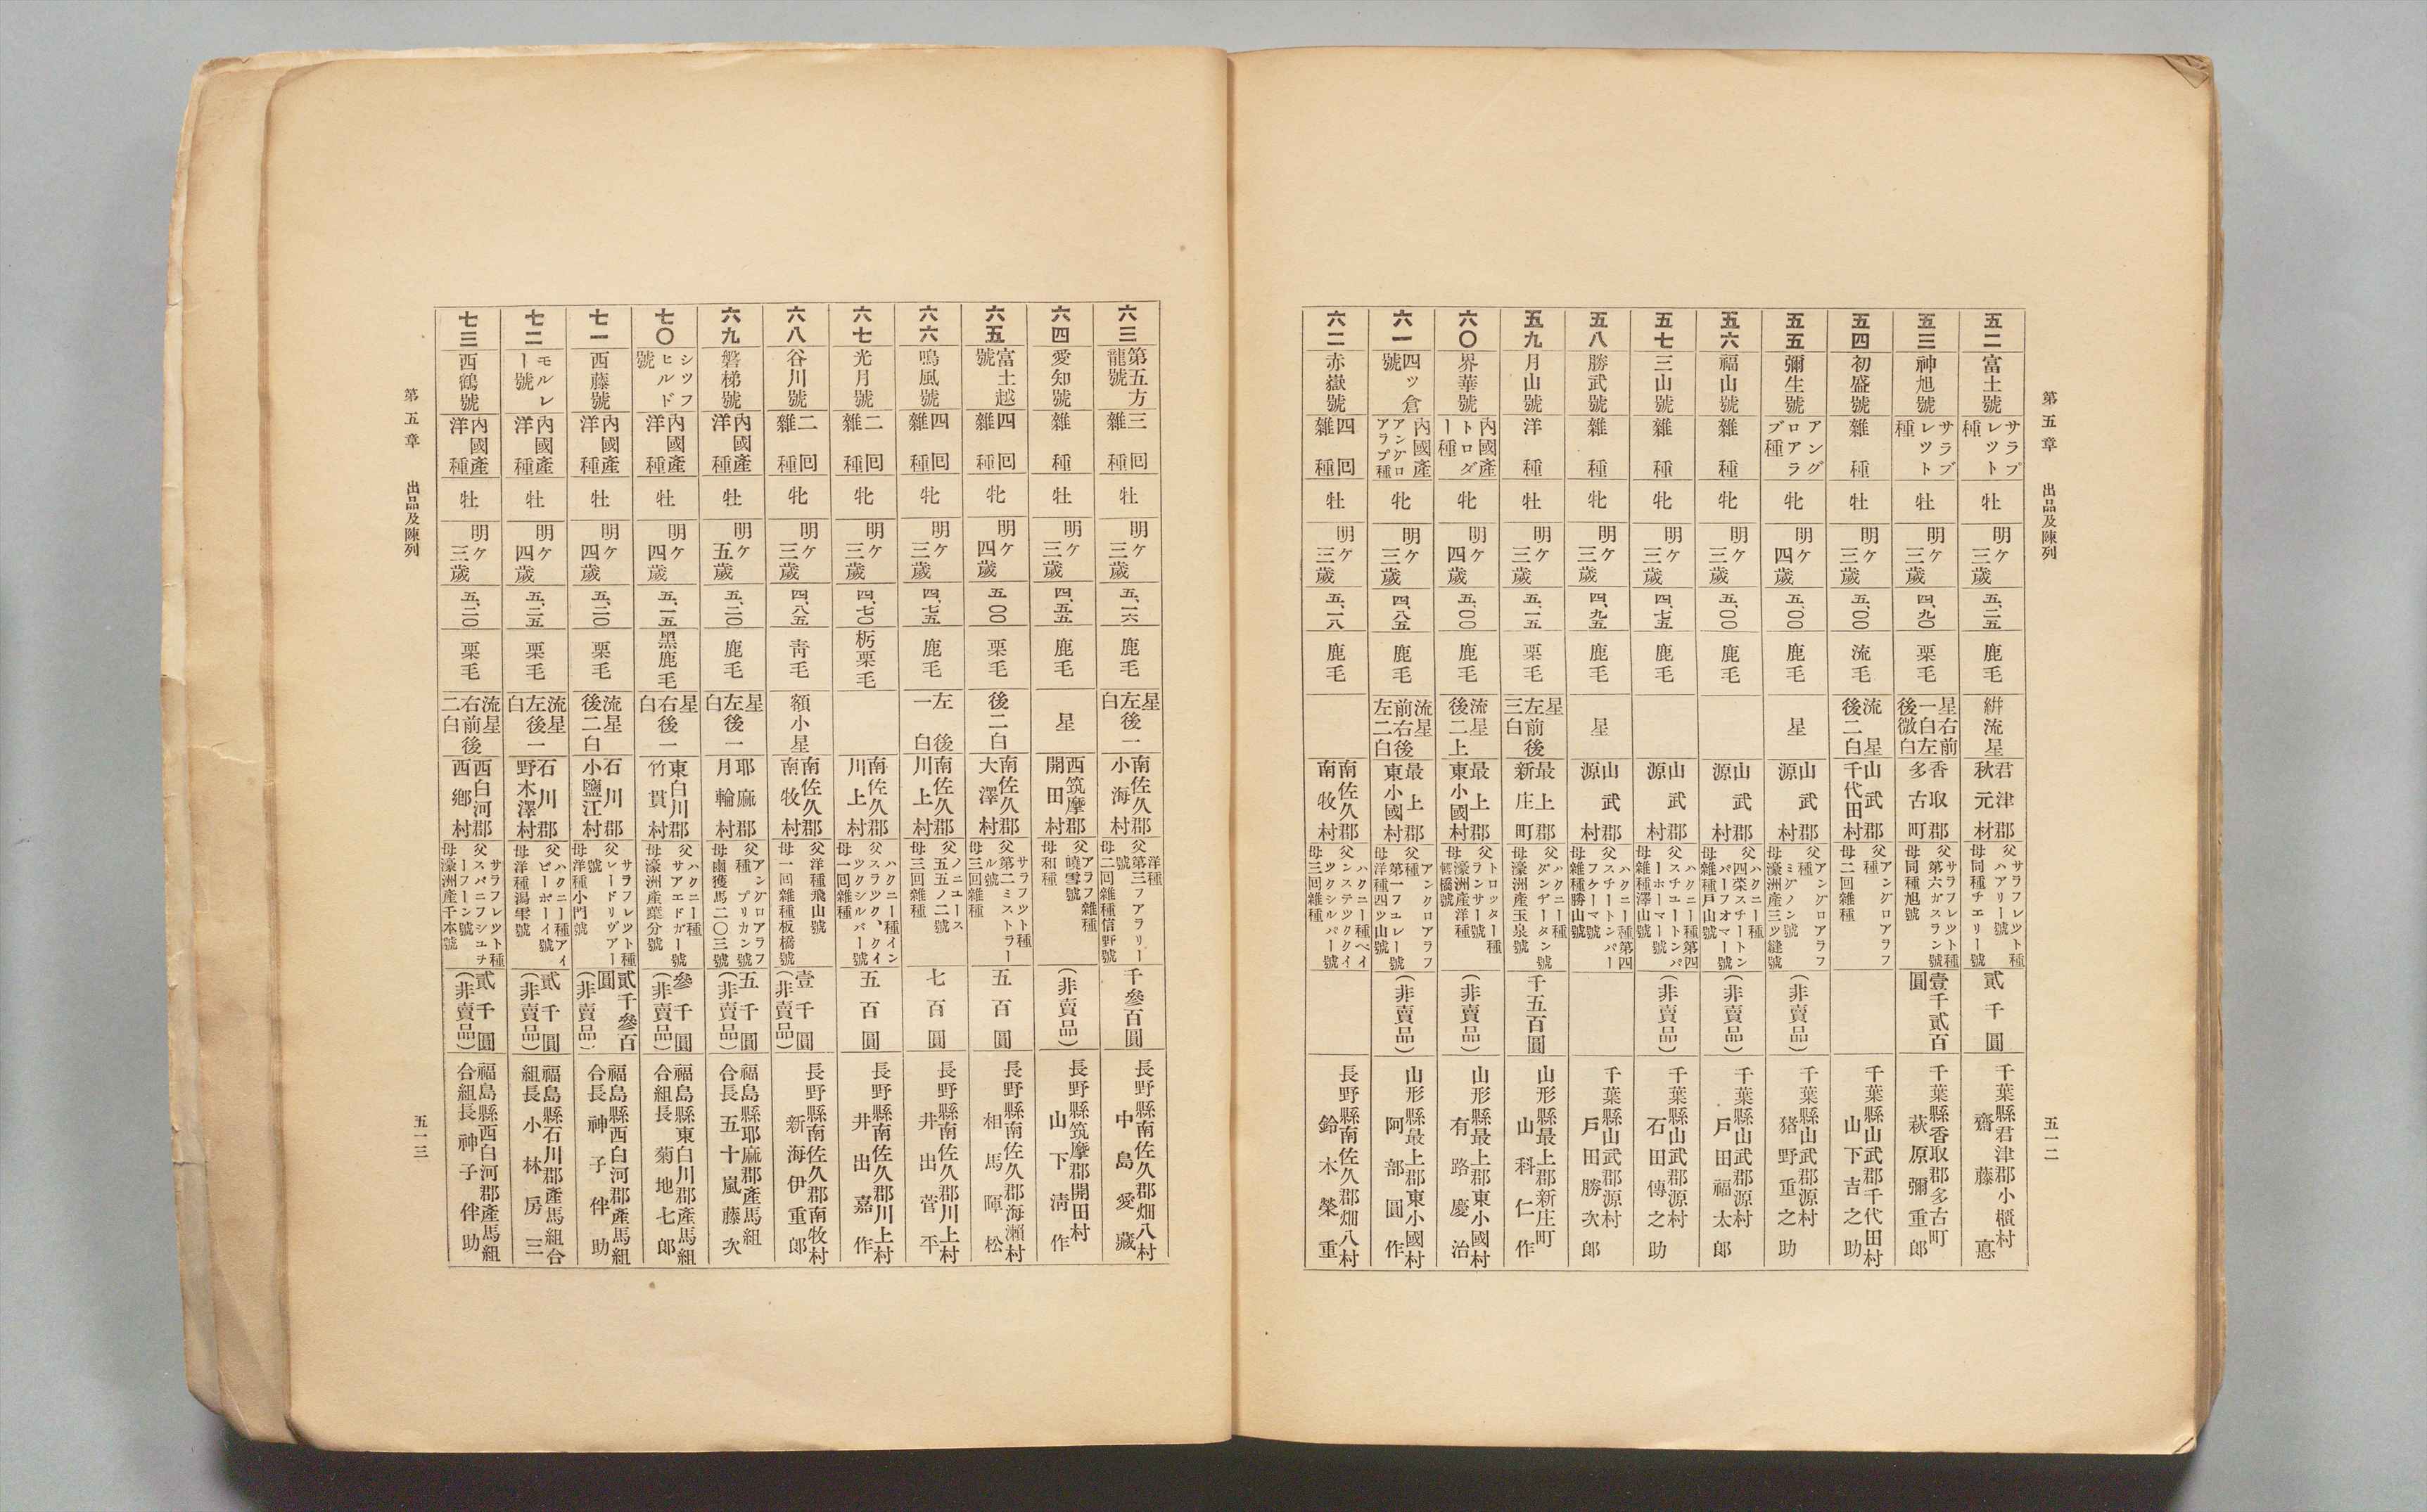 第五章 出品及陳列 五一二
五二 富士號 サラブレツト種 牡 明ケ三歲 五、二五 鹿毛 絣流星 君津郡秋元材 父サラフレツト種ハアリー號 母同種チエリー號 貳千圓 千葉縣君津郡小櫃村 齋藤 憙
五三 神旭號 サラブレツト種 牡 明ケ三歲 四、九〇 栗毛 星右前一白左後微白 香取郡多古町 父サラフレツト種第六ガスラン號 母同種旭號 壹千貳百圓 千葉縣香取郡多古町 萩原彌重郎
五四 初盛號 雜種 牡 明ケ三歲 五、〇〇 流毛 流星後二白 山武郡千代田村 父アングロアラフ種 母二回雜種 千葉縣山武郡千代田村 山下吉之助
五五 彌生號 アングロアラブ種 牝 明ケ四歲 五、〇〇 鹿毛 星 山武郡源村 父アングロアラフ種ミグノン號 母濠洲產三ツ縫號 (非賣品) 千葉縣山武郡源村 猪野重之助
五六 福山號 雜種 牝 明ケ三歲 五、〇〇 鹿毛 山武郡源村 父ハクニー種四榮スチートンパーフオマー號 母雜種戶山號 (非賣品) 千葉縣山武郡源村 戶田福太郎
五七 三山號 雜種 牝 明ケ三歲 四、七五 鹿毛 山武郡源村 父ハクニー種第四スチユートンパーホーマー號 母雜種澤山號 (非賣品) 千葉縣山武郡源村 石田傳之助
五八 勝武號 雜種 牝 明ケ三歲 四、九五 鹿毛 星 山武郡源村 父ハクニー種第四スチートンパーフケーマ號 母雜種勝山號 千葉縣山武郡源村 戶田勝次郎
五九 月山號 洋種 牡 明ケ三歲 五、一五 栗毛 星左前後三白 最上郡新庄町 父ハクニー種ダンデータン號 母濠洲產玉泉號 千五百圓 山形縣最上郡新庄町 山科仁作
六〇 界華號 內國產トロダー種 牝 明ケ四歲 五、〇〇 鹿毛 流星後二上 最上郡東小國村 父トロッター種ランサー號 母濠洲產洋種橋號 (非賣品) 山形縣最上郡東小國村 有路慶治
六一 四ッ倉號 內國產アングロアラブ種 牝 明ケ三歲 四、八五 鹿毛 流星前右後左二白 最上郡東小國村 父アンクロアラフ種第一フユレー號 母洋種四ツ山號 (非賣品) 山形縣最上郡東小國村 阿部圓作
六二 赤嶽號 四回雜種 牡 明ケ三歲 五、一八 鹿毛 南佐久郡南牧村 父ハクニー種ベインステツククイツクシルバー號 母三回雜種 長野縣南佐久郡畑八村 鈴木榮重
六三 第五方龍號 三回雜種 牡 明ケ三歲 五、一六 鹿毛 星左後一白 南佐久郡小海村 父洋種第三フアラリー號 母二回雜種信野號 千參百圓 長野縣南佐久郡畑八村 中島愛藏
六四 愛知號 雜種 牡 明ケ三歲 四、五五 鹿毛 星 西筑摩郡開田村 父アラフ雜種曉雪號 母和種 (非賣品) 長野縣筑摩郡開田村 山下淸作
六五 富士越號 四回雜種 牝 明ケ四歲 五、〇〇 栗毛 後二白 南佐久郡大澤村 父サラフツト種第二ミストラール號 母三回雜種 五百圓 長野縣南佐久郡海瀨村 相馬暉松
六六 鳴風號 四回雜種 牝 明ケ三歲 四、七五 鹿毛 左後一白 南佐久郡川上村 父ノニユース五五ノ二號 母三回雜種 七百圓 長野縣南佐久郡川上村 井出菅平
六七 光月號 二回雜種 牝 明ケ三歲 四、七〇 栃栗毛 南佐久郡川上村 父ハクニー種インスラツク、クイツクシルバー號 母一回雜種 五百圓 長野縣南佐久郡川上村 井出嘉作
六八 谷川號 二回雜種 牝 明ケ三歲 四、八五 靑毛 額小星 南佐久郡南牧村 父洋種飛山號 母一回雜種板橋號 壹千圓(非賣品) 長野縣南佐久郡南牧村 新海伊重郎
六九 磐梯號 內國產洋種 牡 明ケ五歲 五、二〇 鹿毛 星左後一白 耶麻郡月輪村 父アングロアラフ種プリカン號 母鹵獲馬二〇三號 五千圓(非賣品) 福島縣耶麻郡產馬組合長 五十嵐藤次
七〇 シツフヒルド號 內國產洋種 牡 明ケ四歲 五、一五 黑鹿毛 星右後一白 東白川郡竹貫村 父ハクニー種サアエドガー號 母濠洲產葉分號 參千圓(非賣品) 福島縣東白川郡產馬組合組長 菊地七郎
七一 西藤號 內國產洋種 牡 明ケ四歲 五、二〇 栗毛 流星後二白 石川郡小鹽江村 父サラフレツト種レードリヴアー號 母洋種小門號 貳千參百圓(非賣品) 福島縣西白河郡產馬組合長 神子伴助
七二 モルレー號 內國產洋種 牡 明ケ四歲 五、二五 栗毛 流星左後一白 石川郡野木澤村 父ハクニー種アイピーボーイ號 母洋種潟雫號 貳千圓(非賣品) 福島縣石川郡產馬組合組長 小林房三
七三 西鶴號 內國產洋種 牡 明ケ三歲 五、二〇 栗毛 流星右前後二白 西白河郡西鄕村 父サラフレツト種スパニフシユチーフーン號 母濠洲產千本號 貳千圓(非賣品) 福島縣西白河郡產馬組合組長 神子伴助
第五章 出品及陳列 五一三